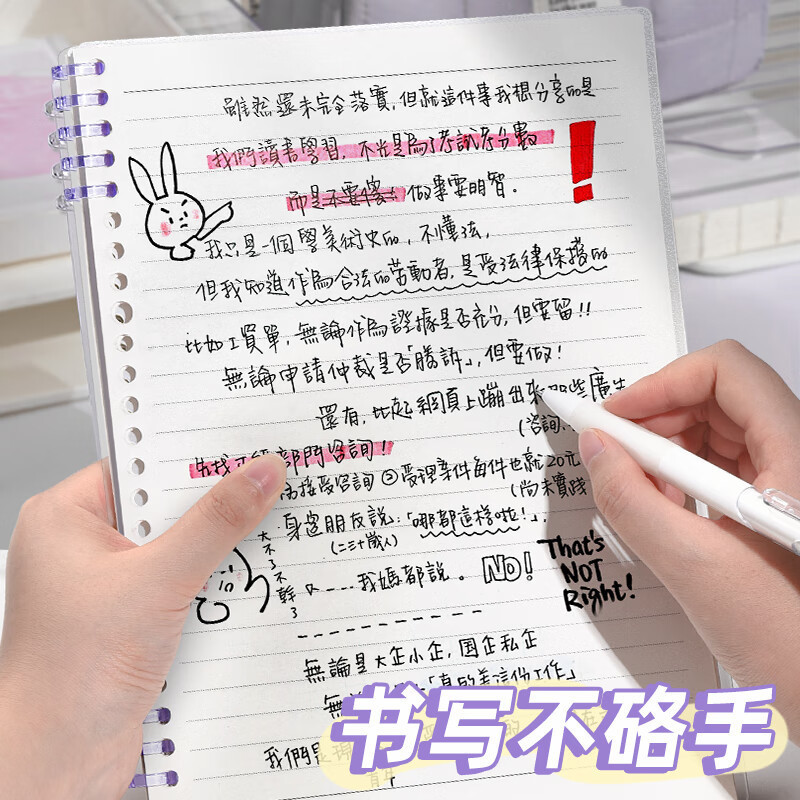 雖然還未完全落實,但就這件事我想分享的是
我們讀書學習,不光是為了考試考分數
而是不要傻!做事要明智。
我只是一個學美術史的,不懂法,
但我知道作為合法的勞動者,是受法律保護的
比如工資單,無論作為證據是否充分,但要留!!
無論申請仲裁是否「勝訴」,但要做!
還有,比起網頁上蹦出來那些廣告
(咨詢
先找 部門咨詢!
接受咨詢 ②受理案件每件也就20元
(尚未實踐
身邊朋友說:「哪都這樣啦!」,
(二三十歲人)
大不了不幹了
又----我媽都說。 NO!
That's
NOT
Right!
無論是大企小企,国企私企
無 「真的差這份工作」
我們是
书写不硌手